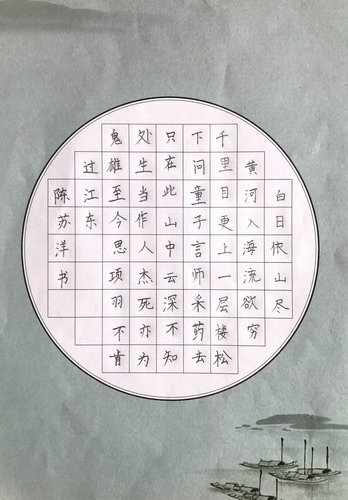 白日依山尽
黄河入海流欲穷
千里目更上一层楼松
下问童子言师采药去
只在此山中云深不知
处生当作人杰死亦为
鬼雄至今思项羽不肯
过江东
陈苏洋书